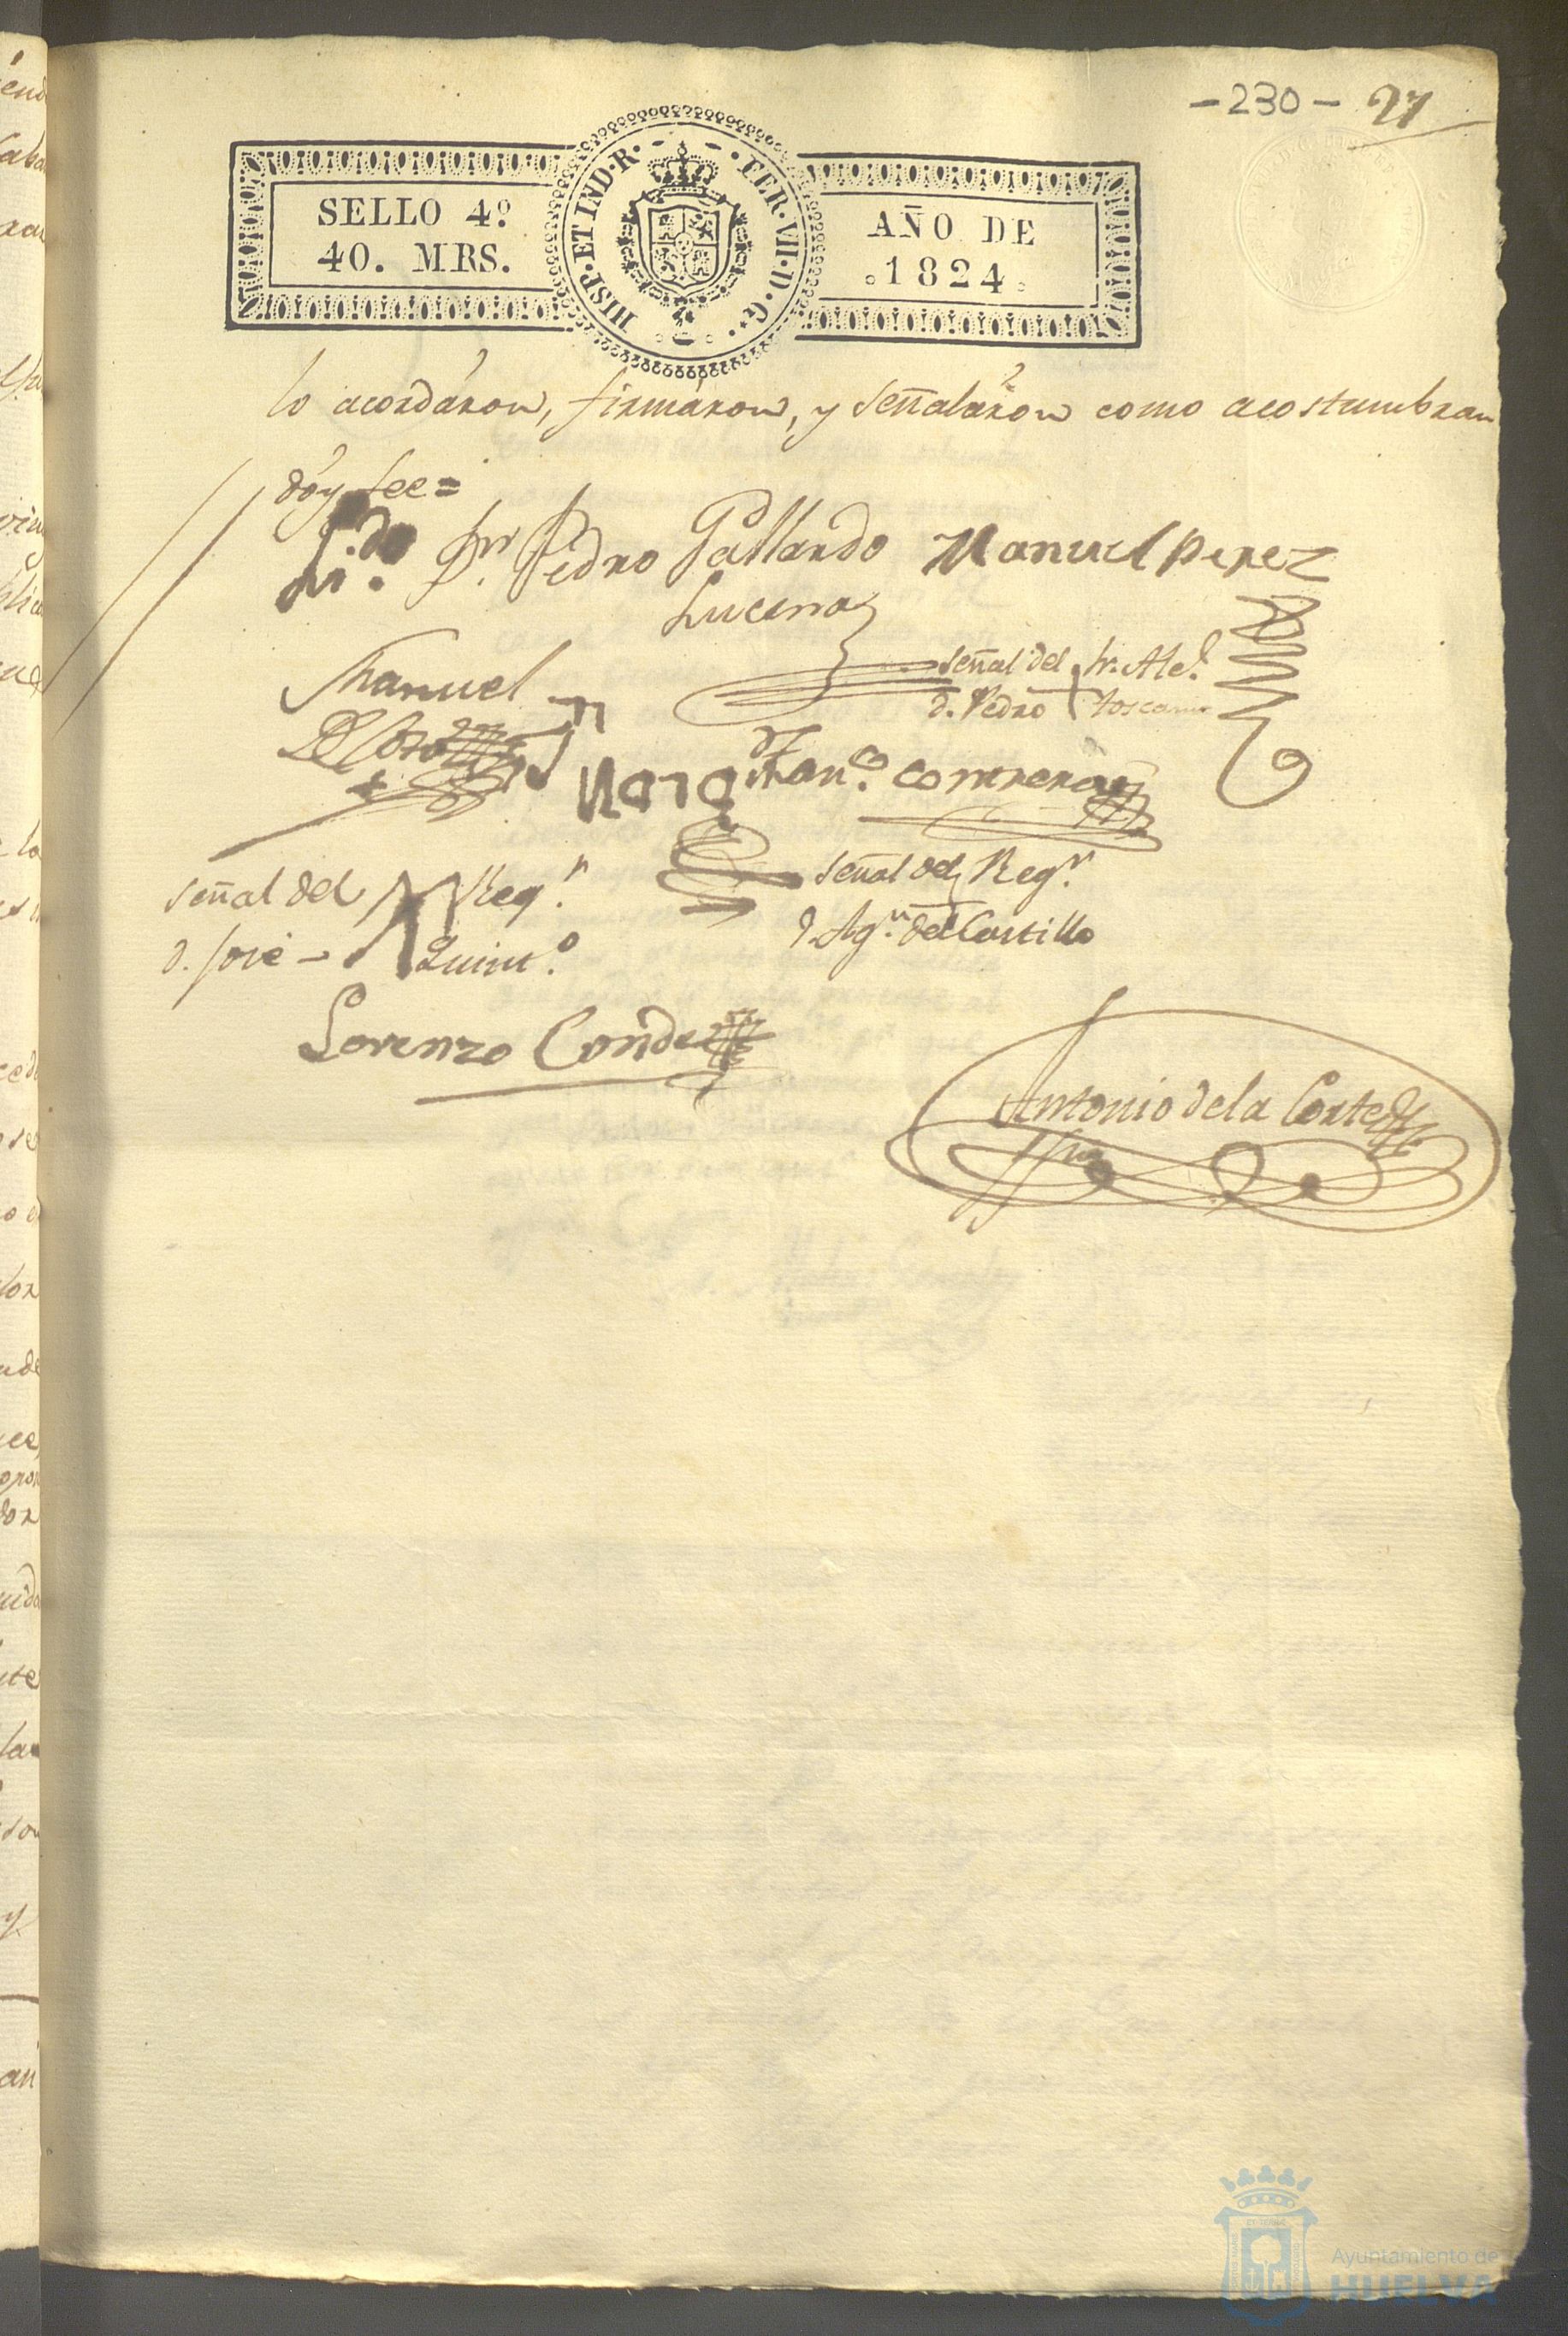 -230- 27
SELLO 4º
40. MRS.
HISP·ET IND·R· FER·VII·D·G·
AÑO DE
1824
lo acordáron, firmáron, y señaláron como acostumbran
dóy fee=
Li.do Dn. Pedro Gallardo Manuel perez
Lucena
señal del Sr. Alc.
d. Pedro toscano
Manuel
fran.co contreras
señal del Reg.r
d. José - Quint.o
señal del Reg.r
d. Ag.n del Castillo
Lorenzo Conde
Antonio de la Corte
Ayuntamiento de
HUELVA